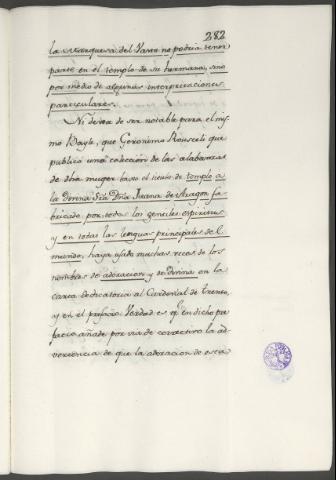 282
la Marquesa del Vasto no podia tener
parte en el templo de su hermana, sino
por medio de algunas interpretaciones
particulares.
No dexa de ser notable para el mis-
mo Bayle, que Geronimo Rouseli que
publicó una coleccion de las alabanzas
de dha muger baxo el titulo de templo a
la Divina Sra. Dña Juana de Aragon fa-
bricado por todos los gentiles espiritus
y en todas las lenguas principales del
mundo, haya usado muchas veces de los
nombres de adoracion y de Divina en la
carta dedicatoria al Cardenal de Trento,
y en el prefacio. Verdad es qe. en dicho pre
facio añade por via de correctivo la ad-
vertencia de que la adoracion de esta